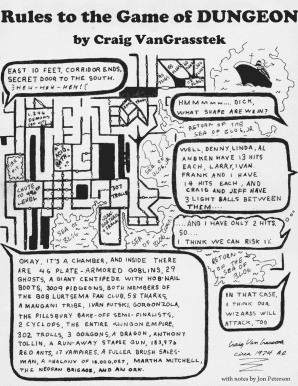 Rules to the Game of DUNGEON
by Craig VanGrasstek
EAST 10 FEET, CORRIDOR ENDS,
SECRET DOOR TO THE SOUTH.
HEH-HEH-HEH!
HMMMM... DICK,
WHAT SHAPE ARE WE IN?
RETURN OF THE
SEA OF BLOG, JR.
WELL, DENNY, LINDA, AL
AND KEN HAVE 13 HITS
EACH, LARRY, IVAN,
FRANK AND I HAVE
14 HITS EACH, AND
CRAIG AND JEFF HAVE
3 LIGHT BALLS BETWEEN
THEM...
...AND I HAVE ONLY 2 HITS,
SO...
I THINK WE CAN RISK IT.
302
TROLLS
OKAY, IT'S A CHAMBER, AND INSIDE THERE
ARE 46 PLATE-ARMORED GOBLINS, 29
GHOSTS, A GIANT CENTIPEDE WITH HOB-NAIL
BOOTS, 3004 PIDGEONS, BOTH MEMBERS OF
THE BOB LURTSEMA FAN CLUB, 58 THARKS,
A MANGANI TRIBE, IVAN PUTSKI, GORGONZOLA,
THE PILLSBURY BAKE-OFF SEMI-FINALISTS,
2 CYCLOPS, THE ENTIRE KLINGON EMPIRE,
302 TROLLS, 3 GORGONS, A DRAGON, ANTHONY
TOLLIN, A RUN-AWAY STAPLE GUN, 183,976
RED ANTS, 17 VAMPIRES, A FULLER BRUSH SALES-
MAN, A BALNIX OF 16,000,057, MARTHA MITCHELL,
THE NEORAN BRIGADE, AND AN ORK.
RETURN OF
SEA OF
BLOG
IN THAT CASE,
I THINK OUR
WIZARDS
WILL ATTACK, TOO
Craig VanGrasstek
circa 1974 AD
with notes by Jon Peterson